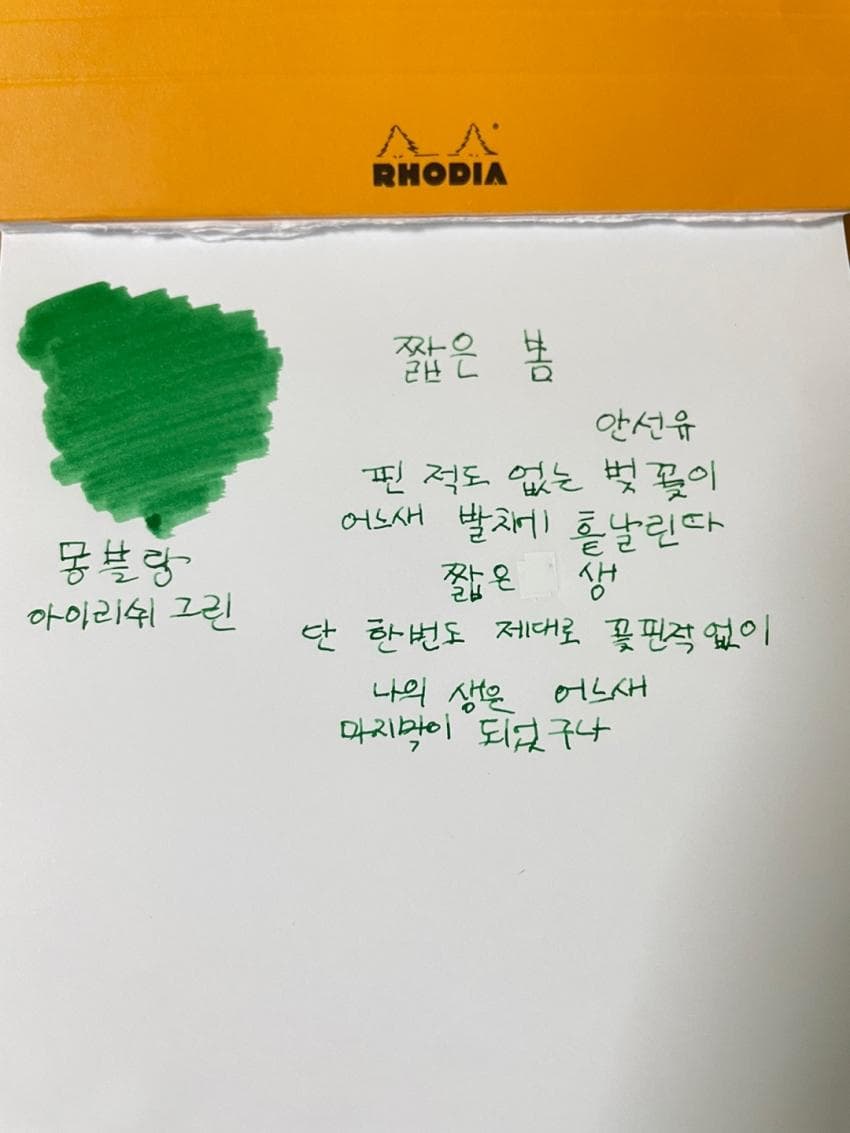 RHODIA
짧은 봄
안선유
핀 적도 없는 벚꽃이
어느새 발치에 흩날린다
짧은 생
단 한번도 제대로 꽃핀적없이
나의 생은 어느새
마지막이 되었구나
몽블랑
아이리쉬 그린